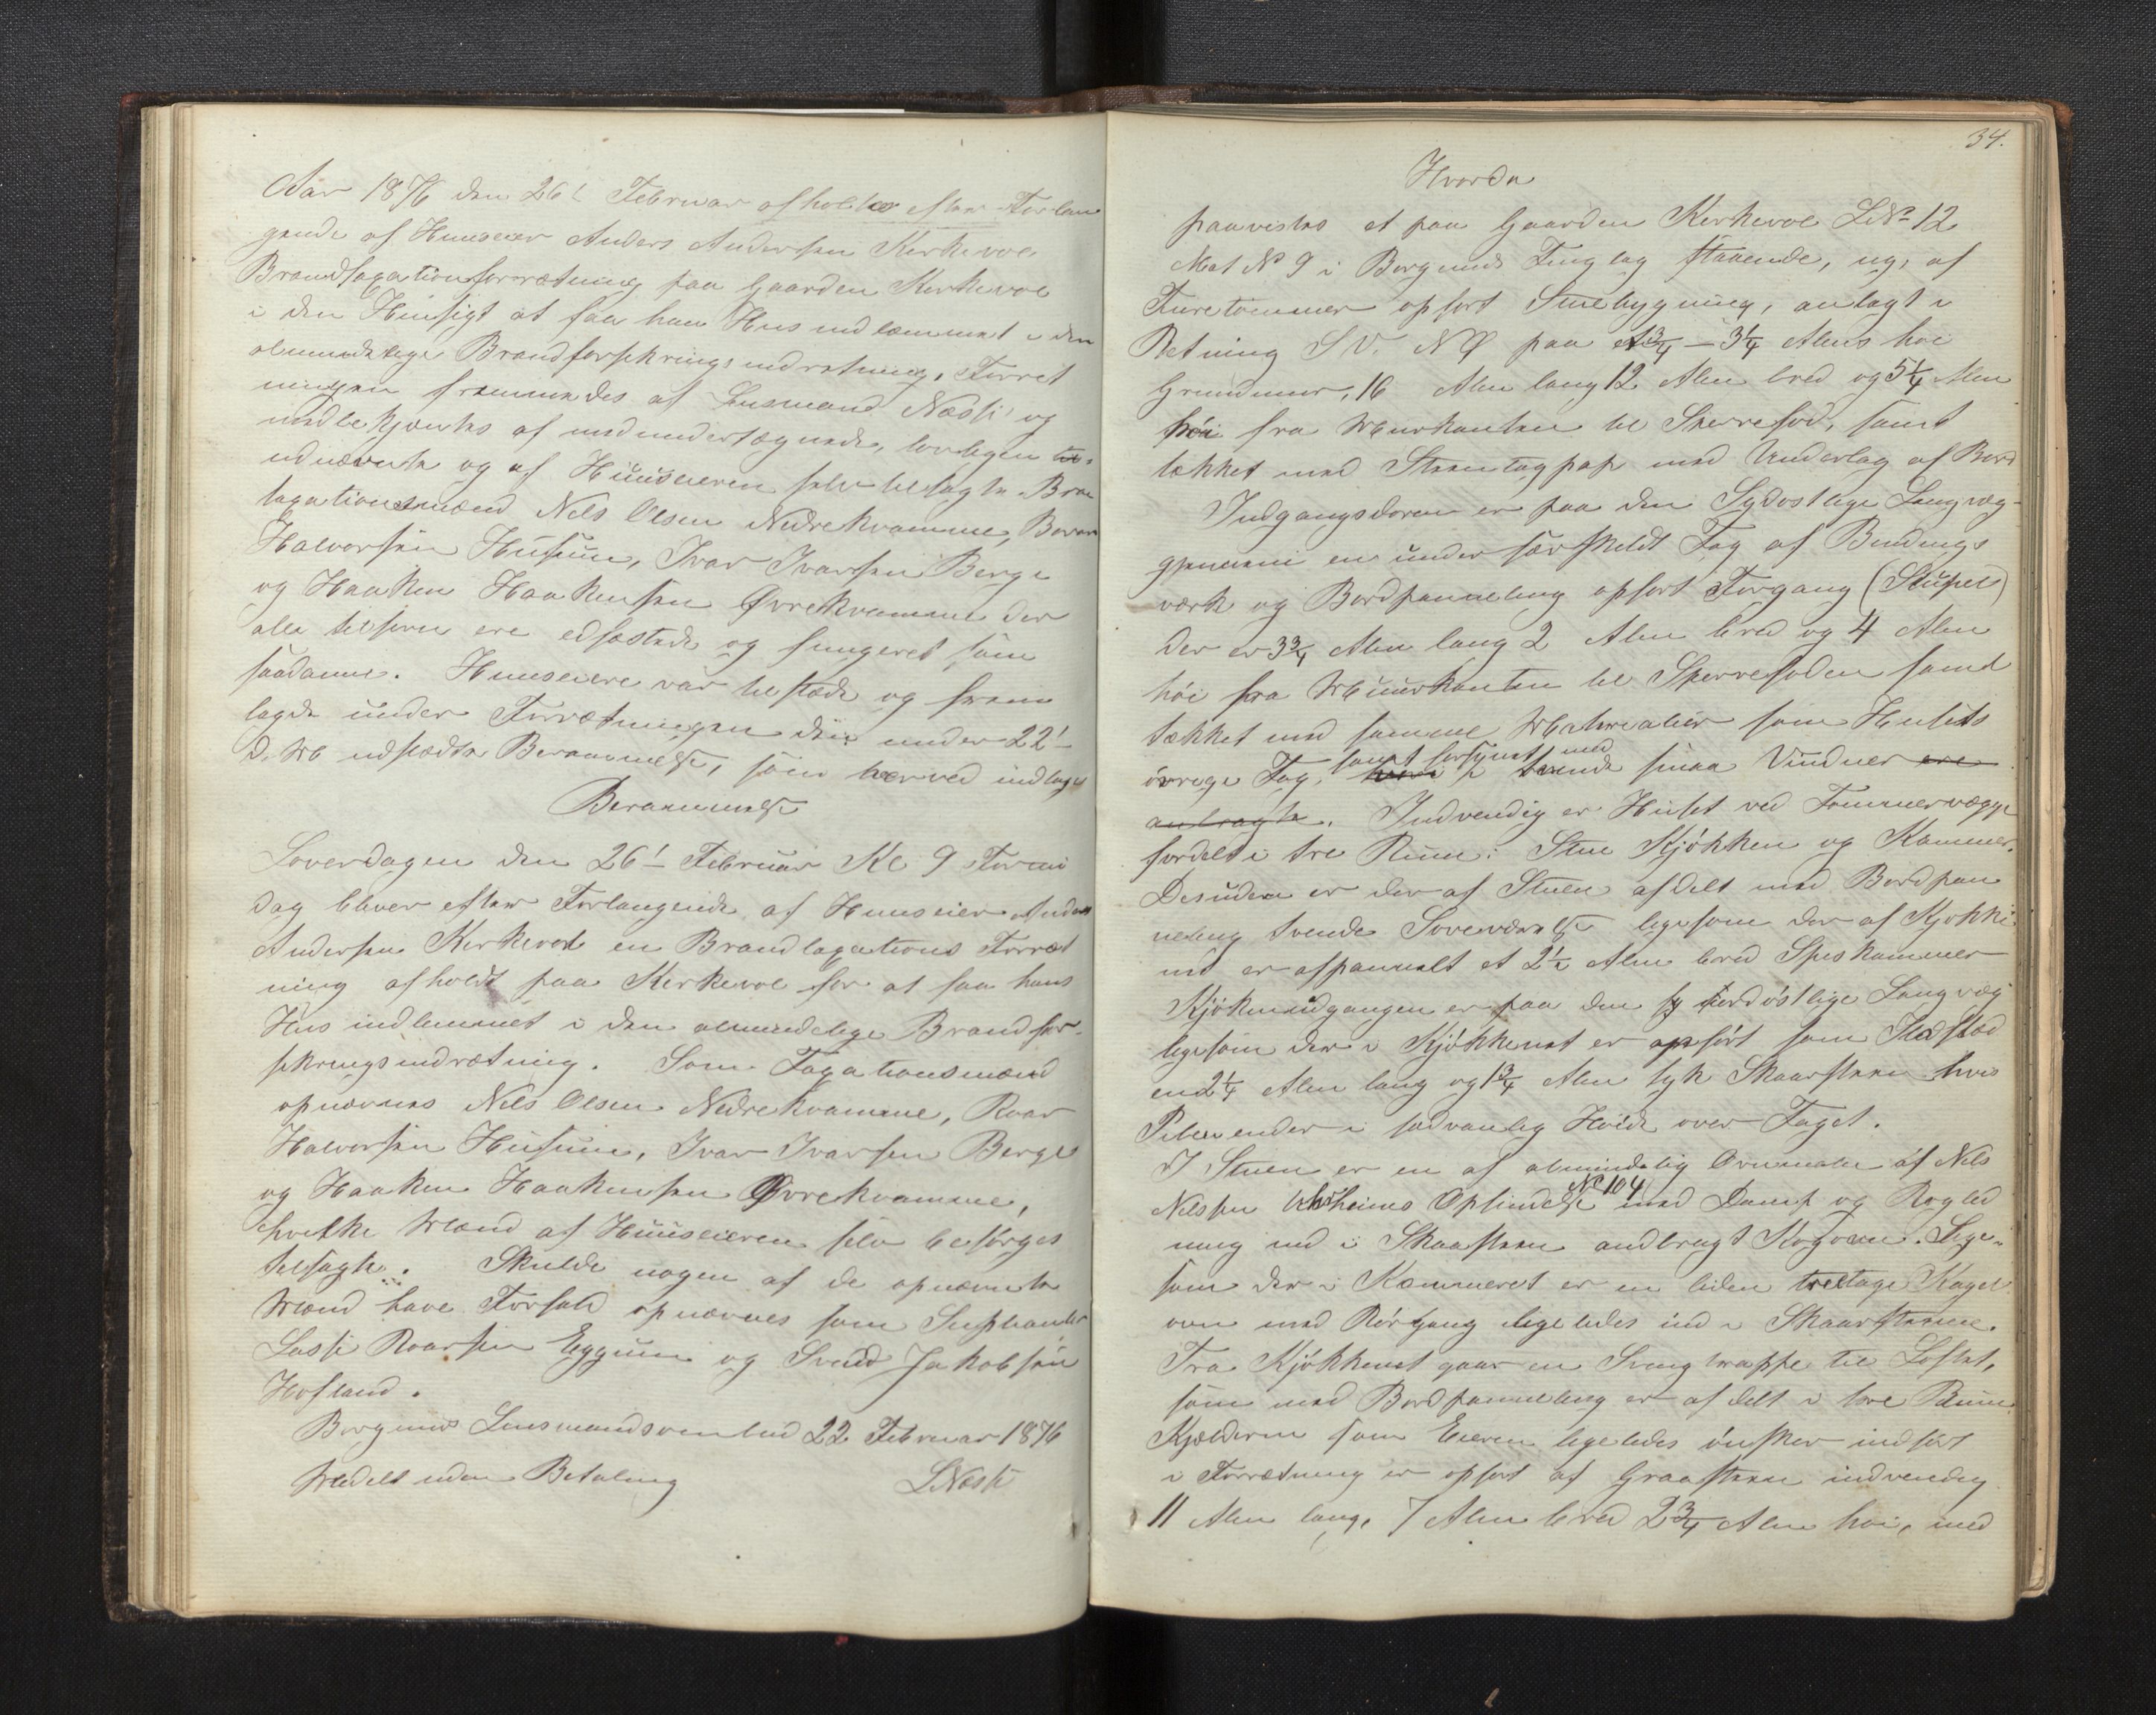 Aar 1876 den 26t Februar afholtes efter Forlan
gende af Huuseier Anders Andersen Kirkevol
Brandtaxationsforretning paa Gaarden Kirkevol
i den Hensigt at faa han Hus indlemmet i den
almindelige Brandforsikringsindretning. Forret
ningen fremmedes af Lensmand Næss og
medbekjentes af medundertegnede, lovligen
udnævnte og af Huuseieren selv tilsagte Bran
taxationsmænd Nels Olsen Nedrekvamme, Roar
Halvorsen Husum, Ivar Ivarsen Berge
og Haaken Haakensen Øvrekvamme der
alle tilforn ere edfæstede og fungeret som
saadanne. Huuseiere var tilstede og frem
lagde under Forretningen den under 22t
d. M. udstædte Berammelse, som herved indtages
Berammelse
Løverdagen den 26t Februar Kl 9 Formi
dag bliver efter Forlangende af Huuseier Anders
Andersen Kirkevol en Brandtaxations Forret
ning afholdt paa Kirkevol for at faa hans
Hus indlemmet i den almindelige Brandfor-
sikringsindretning. Som Taxationsmænd
opnævnes Nels Olsen Nedrekvamme, Roar
Halvorsen Husum, Ivar Ivarsen Berge
og Haaken Haakensen Øvrekvamme,
hvilke Mænd af Huuseieren selv besørges
tilsagte. Skulde nogen af de opnævnte
Mænd have Forfald opnævnes som Supleanter
Lasse Roarsen Eggum og Svend Jakobsen
Hofland.
Borgunds Lensmandsombud 22 Februar 1876
Meddelt uden Betaling LNæss
34.
Hvorda
paavistes et paa Gaarden Kirkevol LNo 12
Mat No 9 i Borgunds Tinglag staaende, ny, af
Furetømmer opført Stuebygning, anlagt i
Retning S V. N Ø paa 1 3/4 - 3 1/4 Alens høi
Grundmur, 16 Alen lang 12 Alen bred og 5 1/4 Alen
høi fra Murkanten til Sperrefod, samt
tækket med Steentagpap med Underlag af Bord
Indgangsdøren er paa den Sydostlige Langvæg
gjennem en under særskildt Tag af Bindings
værk og Bordpanneling opført Forgang (Skupel)
der er 3 3/4 Alen lang 2 Alen bred og 4 Alen
høi fra Muurkanten til Sperrefoden samt
tækket med samme Materialier som Husets
øvrige Tag, samt forsynet med tvende smaa Vinduer ere
anbragte. Indvendig er Huset ved Tømmervægge
fordelt i tre Rum: Stue Kjøkken og Kammer.
Desuden er der af Stuen afdelt med Bordpan
neling tvende Soveværelse ligesom der af Kjøkke
net er afpannelt et 2 1/2 Alen bred Speskammer
Kjøkenudgangen er paa den sy nordøstlige Langvæg
ligesom der i Kjøkkenet er opført som Ildsted
en 2 1/4 Alen lang og 1 3/4 Alen tyk Skaarsteen hvis
Pibe ender i sædvanlig Høide over Taget.
I Stuen er en af almindelig Ovnmale af Nels
Nelssen Opfindelse No 104 med Damp og Røgled
ning ind i Skaarsteen andbragt Kogovn. Lige-
som der i Kammeret er en liden treetage Kagel
ovn med Rørgang ligeledes ind i Skaarstenen.
Fra Kjøkkenet gaar en Svingtrappe til Loftet,
som med Bordpanneling er afdelt i tre Rum
Kjælderen som Eieren ligeledes ønsker indført
i Forretning er opført af Graasteen indvendig
11 Alen lang, 7 Alen bred 2 3/4 Alen høi, med